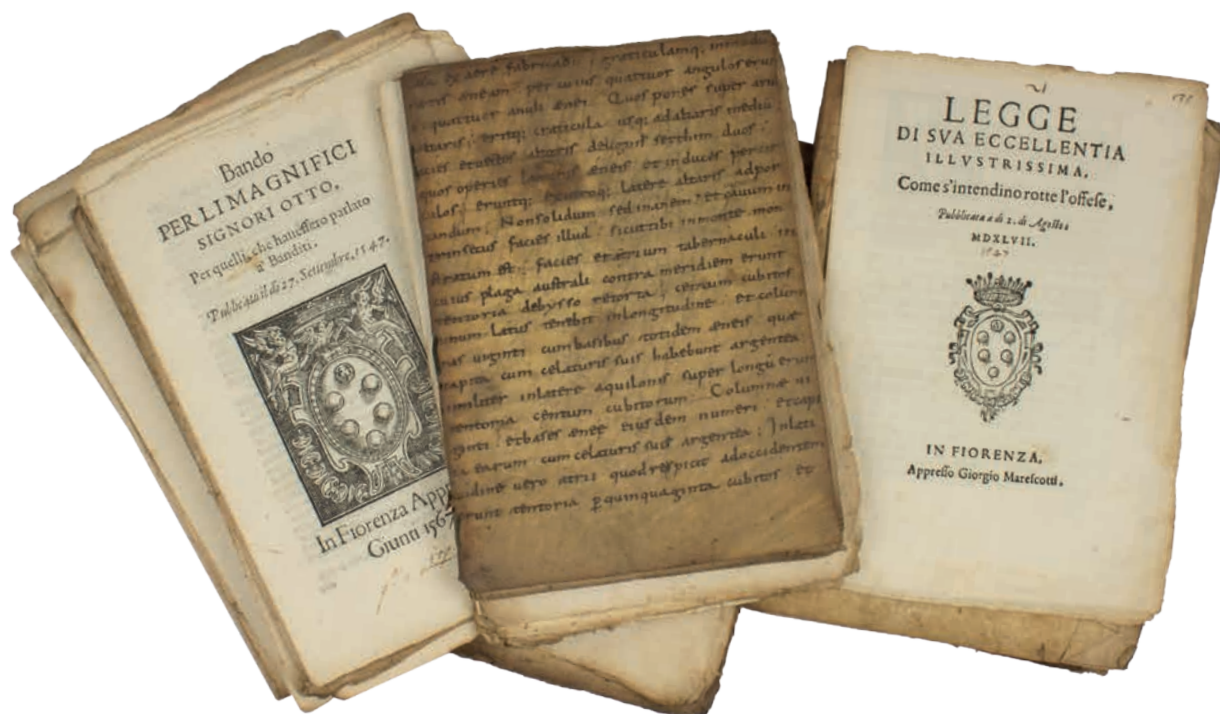 Bando
PER LI MAGNIFICI
SIGNORI OTTO,
Per quelli, che hauessero parlato
a' Banditi.
Publicato il dì 27. Settembre, 1547.
In Fiorenza App
Giunti 156
ex aere fabricabis; graticulamq; in modu
aeneam; per cuius quattuor angulos erunt
quattuor anuli aenei. Quos pones super aru
altaris; eritq; craticula usq; ad altaris mediu
et uectes altaris de lignis setthim duos;
quos operies laminis aeneis et induces per cir
culos; eruntq; ex utroq; latere altaris ad por
tandum; Non solidum sed inanem; et cauum in
trinsecus facies illud; sicut tibi in monte mon
stratum est; facies et atrium tabernaculi in
cuius plaga australi contra meridiem erunt
tentoria de bysso retorta; centum cubitos
unum latus tenebit in longitudine; et colum
nas uiginti cum basibus totidem aeneis quae
capita cum celaturis suis habebunt argentea
similiter in latere aquilonis super longū erunt
tentoria centum cubitorum; Columnae ui
ginti; et bases aeneae eiusdem numeri et capi
ta earum cum celaturis suis argentea; In lati
tudine uero atrii quod respicit ad occidentem
erunt tentoria ꝑ quinquaginta cubitos et
LEGGE
DI SVA ECCELLENTIA
ILLVSTRISSIMA,
Come s'intendino rotte l'offese,
Pubblicata a di 2. di Agosto
MDXLVII.
1547
IN FIORENZA,
Appresso Giorgio Marescotti.